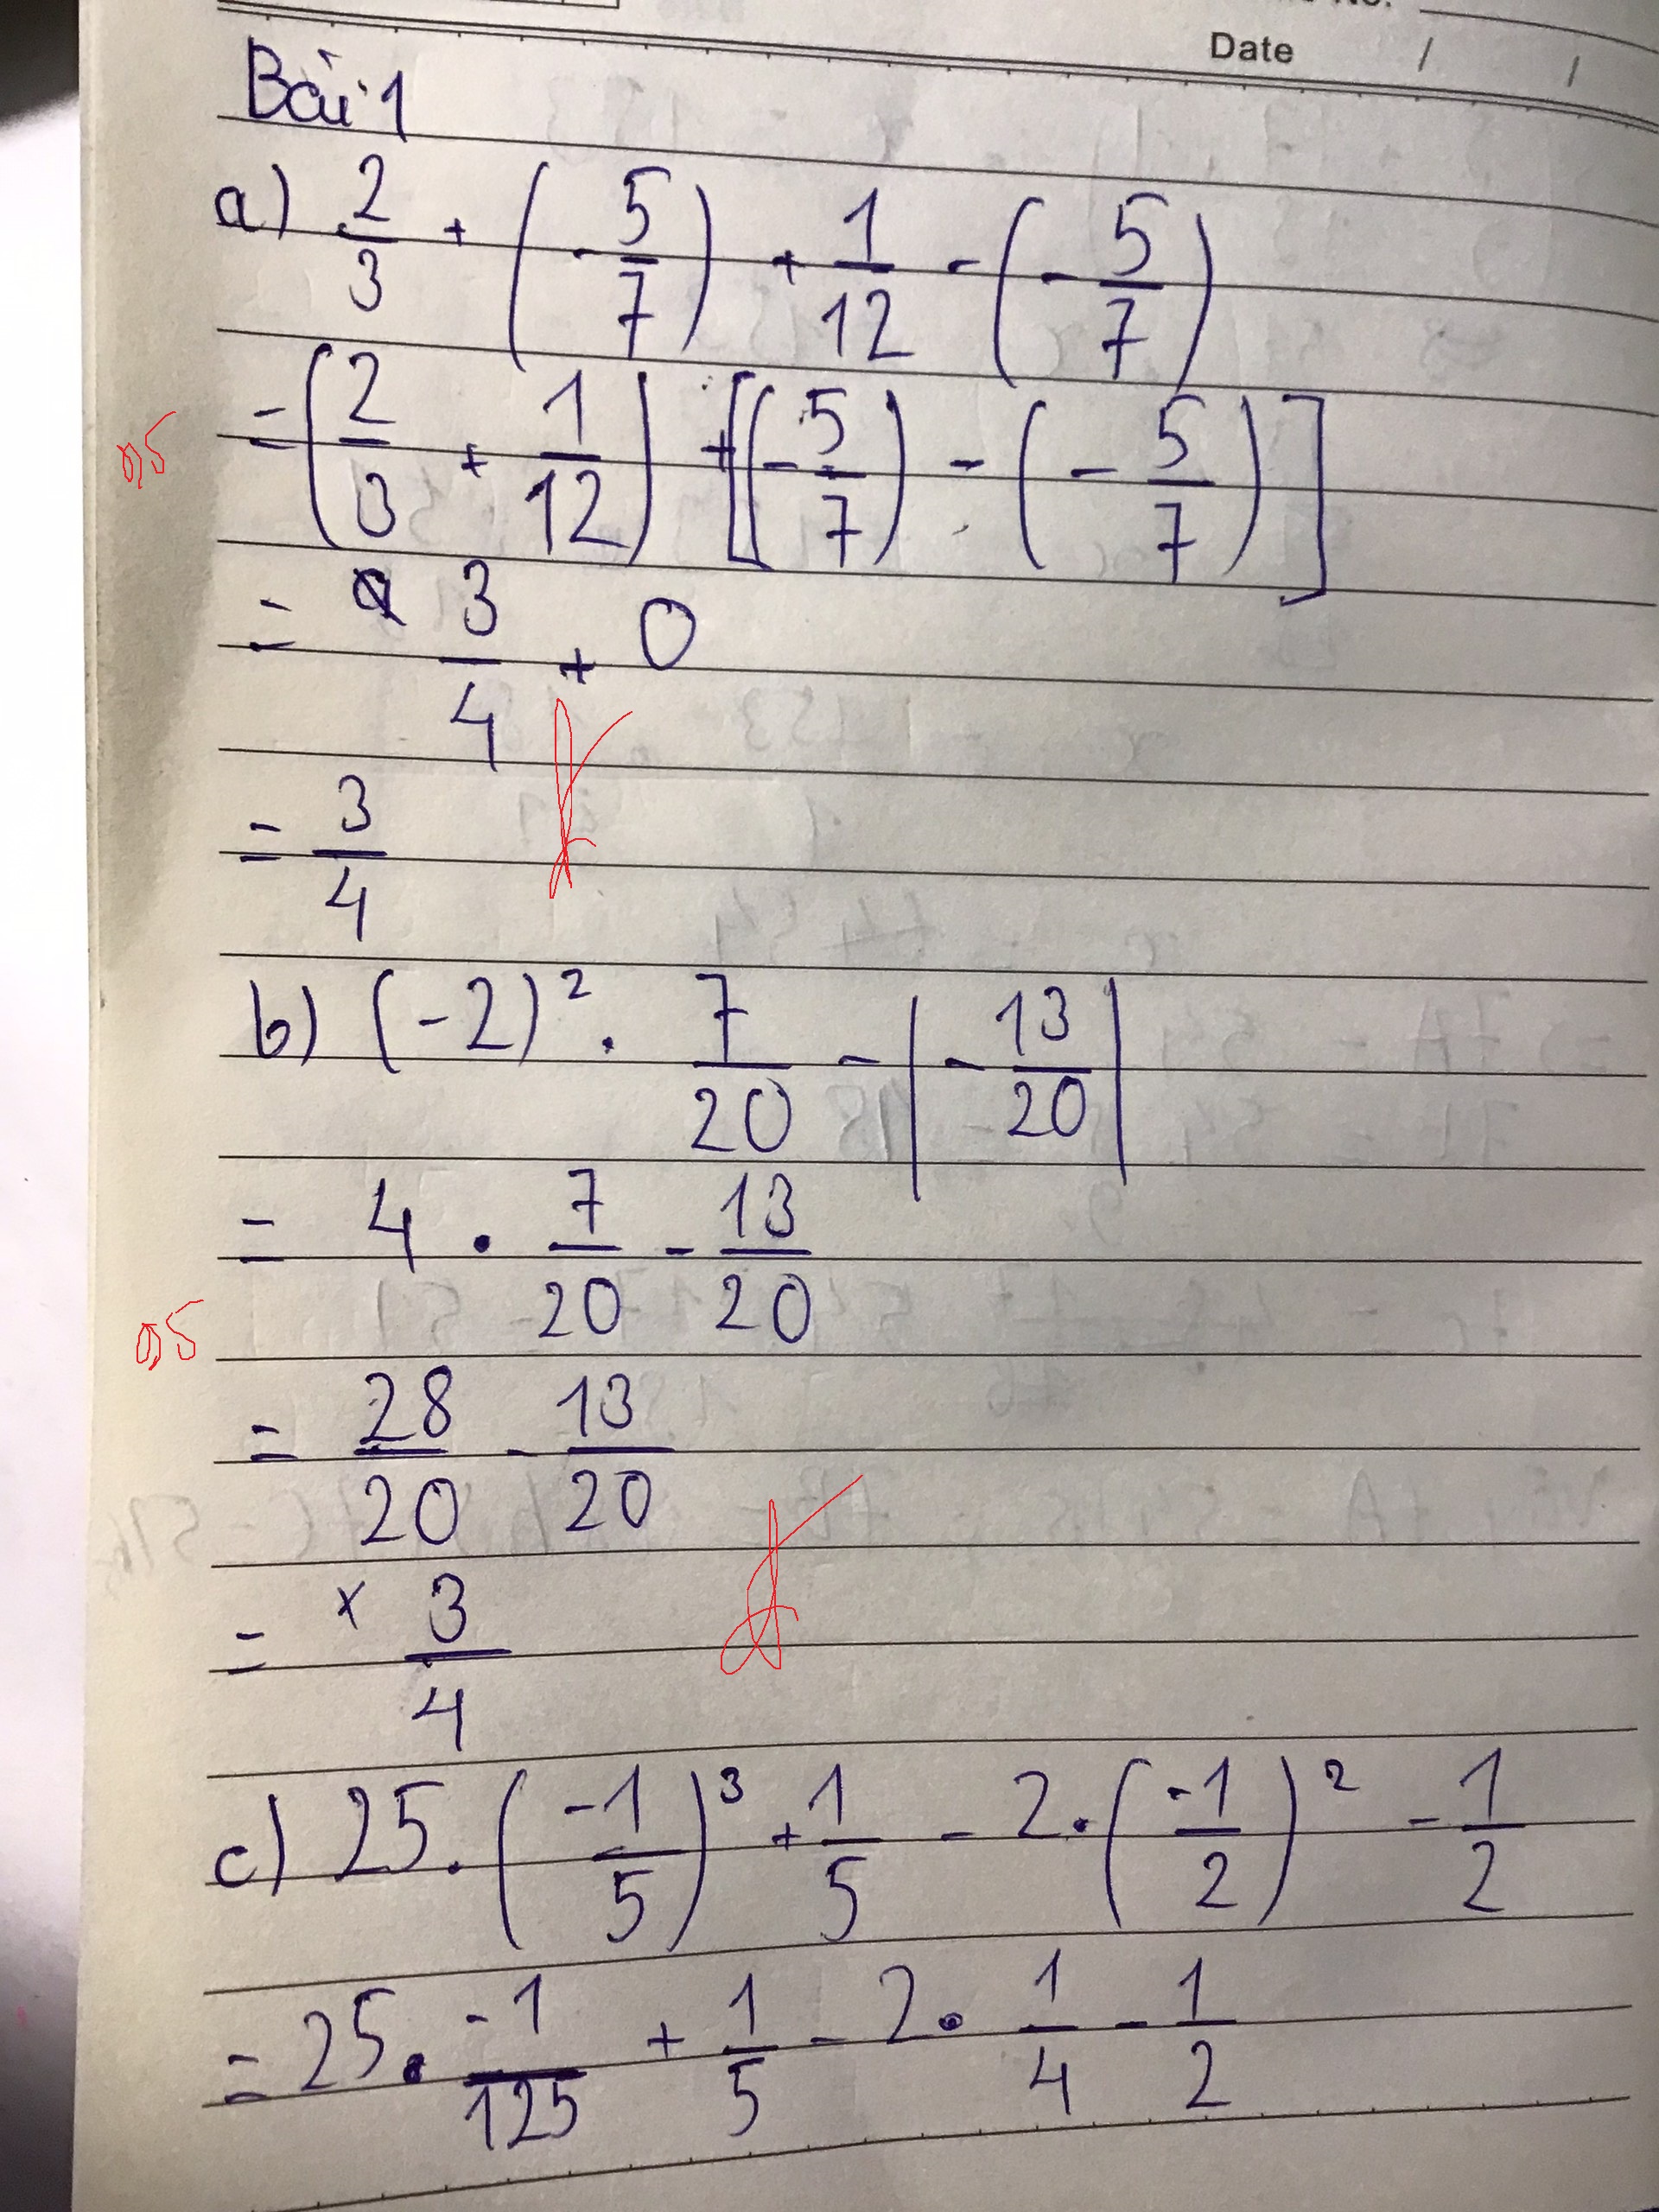 Date / /
Bài 1
a) 2/3 + (-5/7) + 1/12 - (-5/7)
= (2/3 + 1/12) + [(-5/7) - (-5/7)]
0,5
= 3/4 + 0
= 3/4
b) (-2)² . 7/20 - |-13/20|
= 4 . 7/20 - 13/20
0,5
= 28/20 - 13/20
= 3/4
c) 25 . (-1/5)³ + 1/5 - 2 . (-1/2)² - 1/2
= 25 . -1/125 + 1/5 - 2 . 1/4 - 1/2